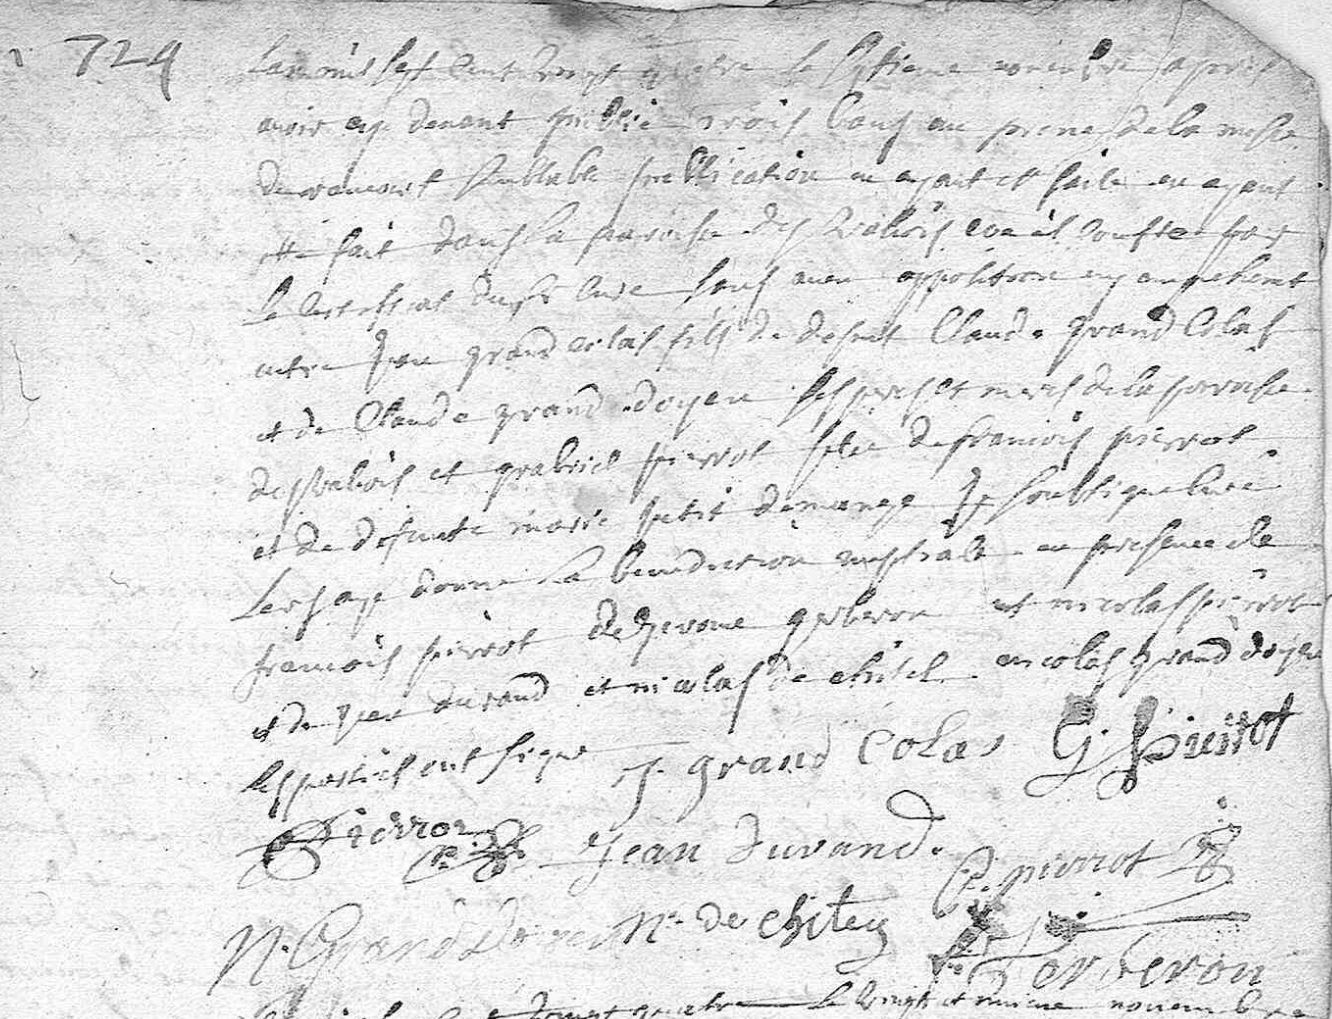 724
Lan mis sept cent vingt quatre le septieme novembre apres
avoir cy devant publié trois bans au prone de la messe
de semblable publication en ayant et faite en ayant
ette fait dans la paroisse des valois par
le certificat du Sr Curé sans aucun oppolition ny empechemt
entre Jean grand Colas fils de defunt Claude grand Colas
et de Claude grand doyen ses peres et meres de la paroisse
des valois et gabriel pierrot fille de francois pierrot
et de defunte marie petit demange Je soubsigne Curé
Leur ay donne la benediction nuptiale en presence de
francois pierrot de Jerome gerberon et nicolas pierrot
et de Jean durand et nicolas de chitel nicolas grand doyen
les parties ont signe J. grand Colas G. pierrot
Pierrot Jean Durand
C. pierrot
N. Grand Doyen N. de chitey
J Gerberon
vingt quatre Le vingt et unieme novembre